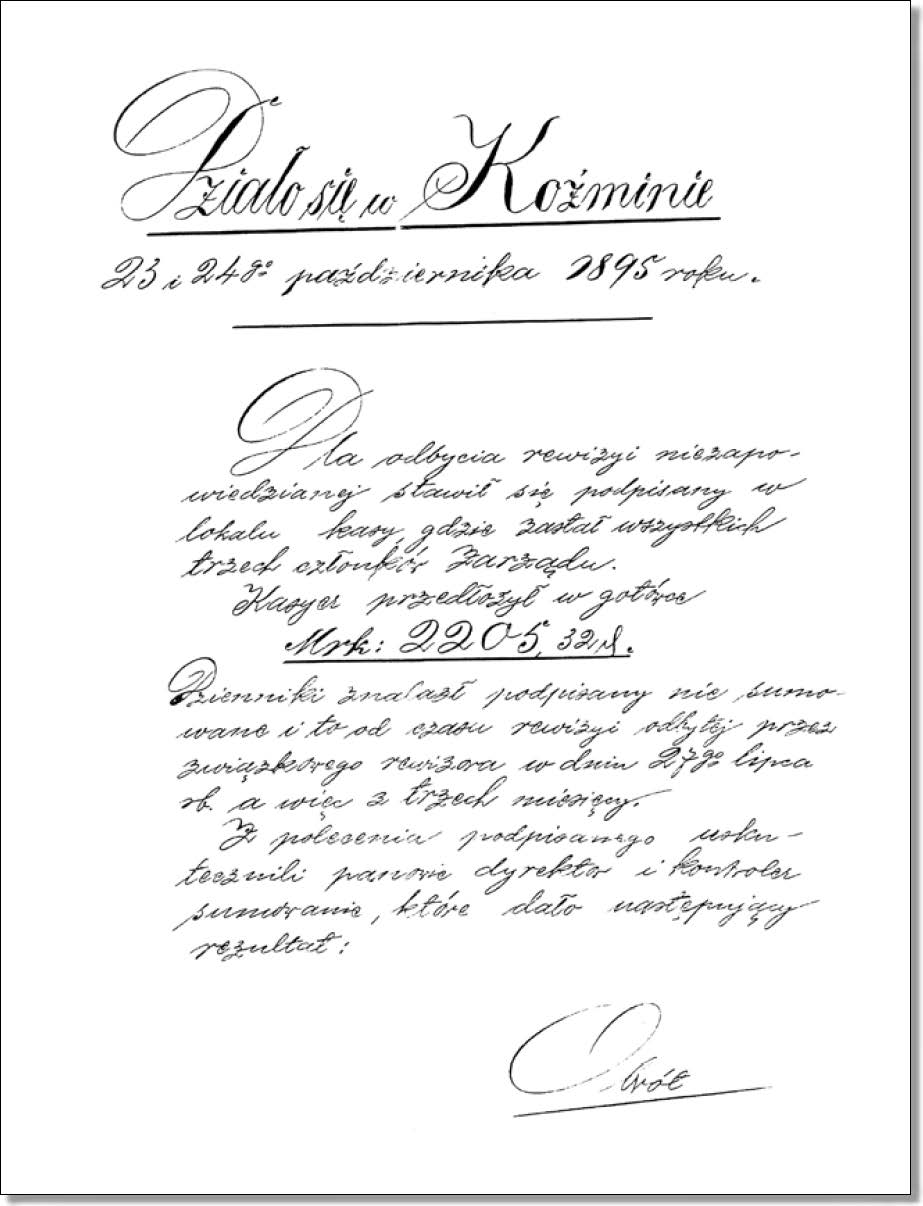 Działo się w Koźminie
23 i 24go października 1895 roku.
Dla odbycia rewizyi niezapo-
wiedzianej stawił się podpisany w
lokalu kasy, gdzie zastał wszystkich
trzech członków Zarządu.
Kasyer przedłożył w gotówce
Mrk: 2205,32
Dzienniki znalazł podpisany nie sumo-
wane i to od czasu rewizyi odbytej przez
związkowego rewizora w dniu 27go lipca
rb. a więc z trzech miesięcy.
Z polecenia podpisanego usku-
tecznili panowie dyrektor i kontroler
sumowanie, które dało następujący
rezultat:
Obrót